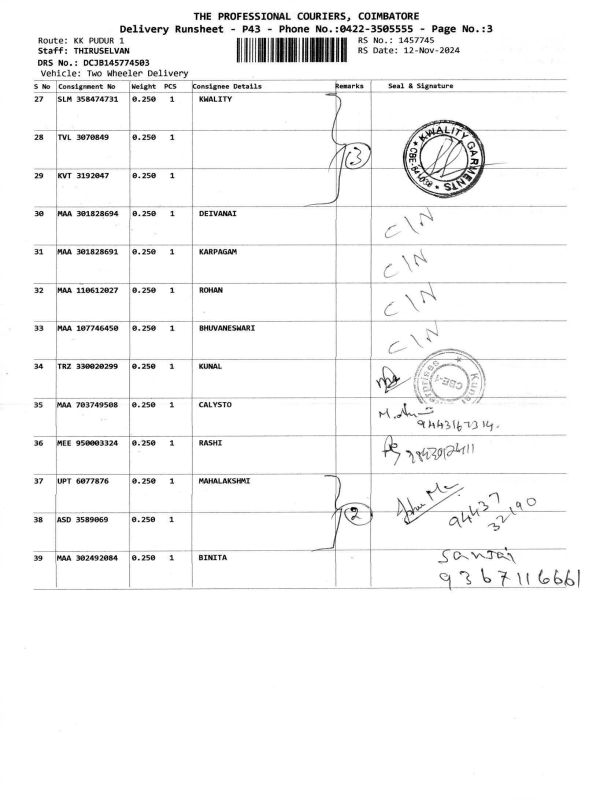 THE PROFESSIONAL COURIERS, COIMBATORE
Delivery Runsheet - P43 - Phone No.:0422-3505555 - Page No.:3
Route: KK PUDUR 1 RS No.: 1457745
Staff: THIRUSELVAN RS Date: 12-Nov-2024
DRS No.: DCJB145774503
Vehicle: Two Wheeler Delivery
S No Consignment No Weight PCS Consignee Details Remarks Seal & Signature
27 SLM 358474731 0.250 1 KWALITY
28 TVL 3070849 0.250 1 3 KWALITY GARMENTS
29 KVT 3192047 0.250 1
30 MAA 301828694 0.250 1 DEIVANAI C/N
31 MAA 301828691 0.250 1 KARPAGAM C/N
32 MAA 110612027 0.250 1 ROHAN C/N
33 MAA 107746450 0.250 1 BHUVANESWARI C/N
34 TRZ 330020299 0.250 1 KUNAL
35 MAA 703749508 0.250 1 CALYSTO
36 MEE 950003324 0.250 1 RASHI
37 UPT 6077876 0.250 1 MAHALAKSHMI 94437
38 ASD 3589069 0.250 1 2 32190
39 MAA 302492084 0.250 1 BINITA
9367116661